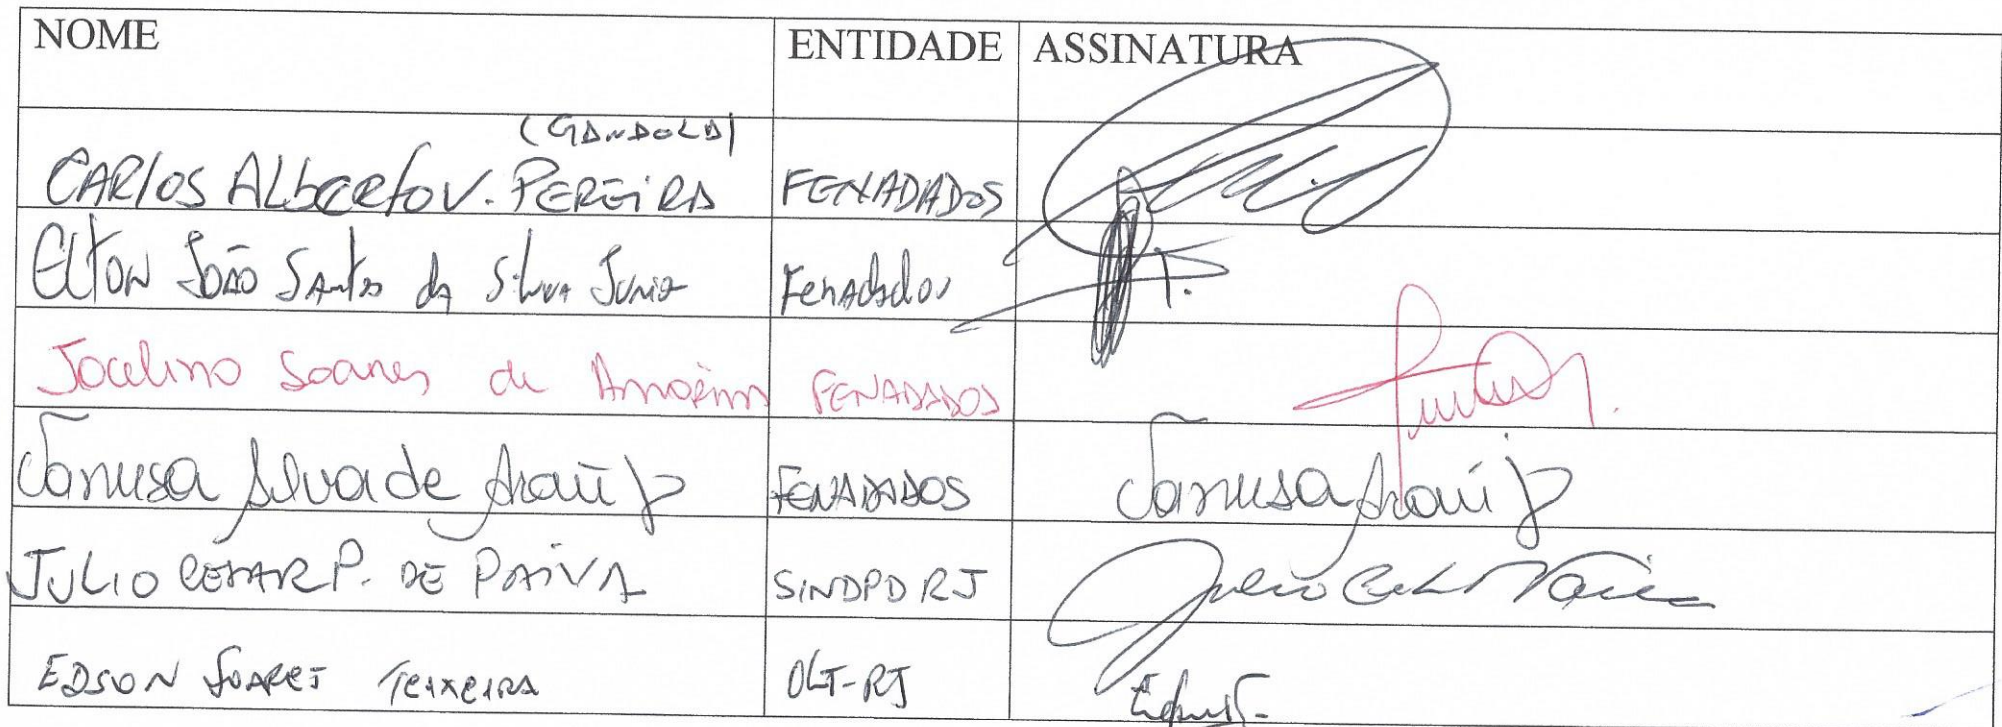 NOME ENTIDADE ASSINATURA
(GANDOLA)
CARLOS ALberto V. PEREIRA FENADADOS
ELTON JOÃO SANTOS da Silva Junior Fenadados
Jocelino Soares de Amorim FENADADOS
Vanusa Silva de Araújo FENADADOS Vanusa Araújo
JULIO CESAR P. DE PAIVA SINDPD RJ Julio Paiva
EDSON SOARES TEIXEIRA OLT-RJ